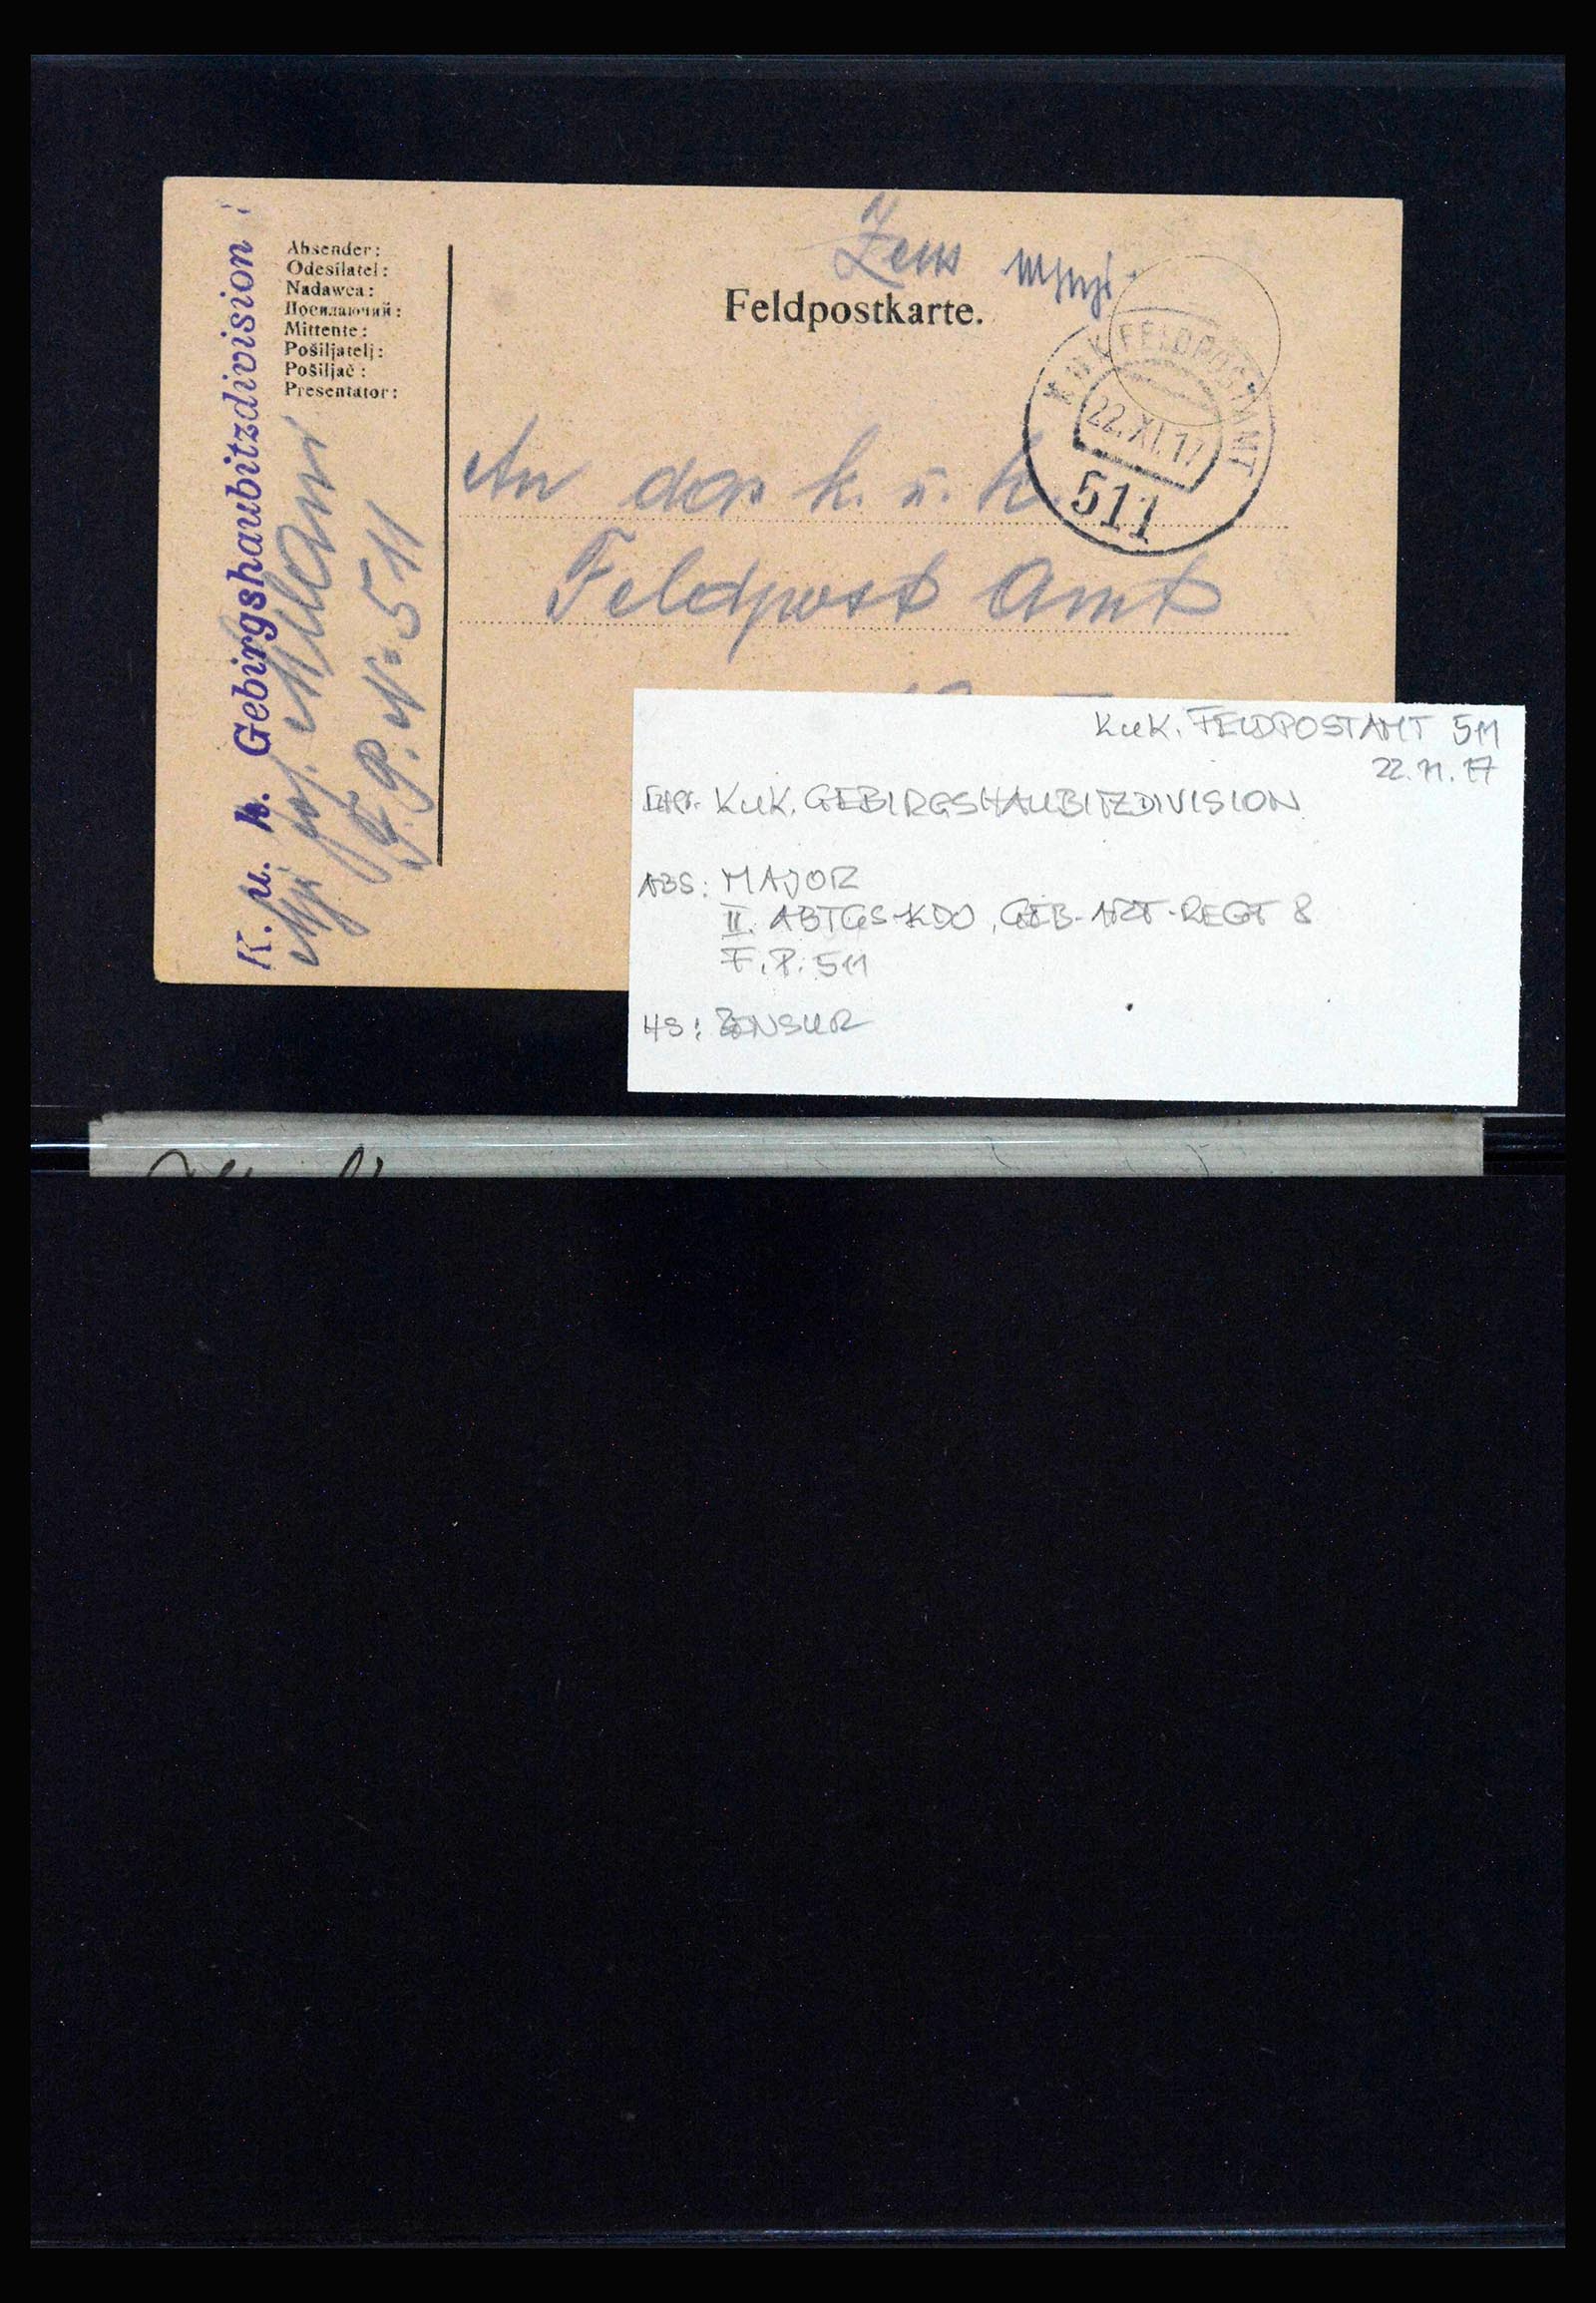 K. u. k. Gebirgshaubitzdivision
Absender:
Odesílatel:
Nadawca:
Посилаючий:
Mittente:
Pošiljatelj:
Pošiljač:
Presentator:
F. P. N° 511
Zens
Feldpostkarte.
K.u.K. FELDPOSTAMT
22.XI.17
511
An das k. u. k.
Feldpost Amt
KuK. FELDPOSTAMT 511
22.11.17
KuK. GEBIRGSHAUBITZDIVISION
ABS: MAJOR
II. ABTGS-KDO, GEB-ART-REGT 8
F.P. 511
HS: ZENSUR